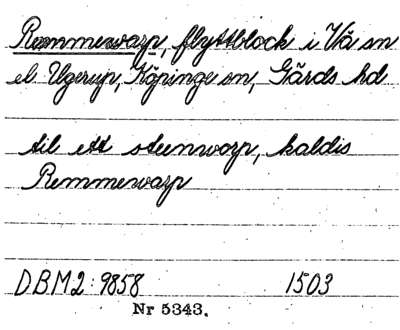 Remmewarp, flyttblock i Vä sn
el Ugerup, Köpinge sn, Gärds hd
til ett steenwarp, kaldis
Remmewarp
DBM2: 9858 1503
Nr 5343.